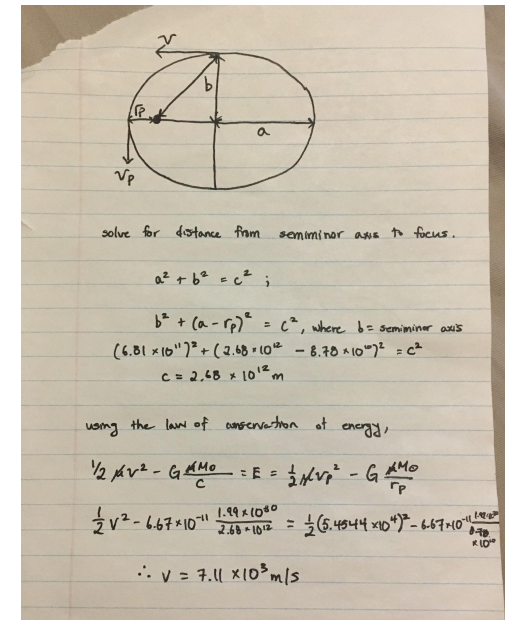 v
b
rp
a
vp
solve for distance from semiminor axis to focus.
a² + b² = c² ;
b² + (a - rp)² = c², where b = semiminor axis
(6.81 × 10¹¹)² + (2.68 × 10¹² - 8.78 × 10¹⁰)² = c²
c = 2.68 × 10¹² m
using the law of conservation of energy,
1/2 μv² - G μM⊙/c = E = 1/2 μvp² - G μM⊙/rp
1/2 v² - 6.67×10⁻¹¹ 1.99 × 10³⁰/2.68 × 10¹² = 1/2 (5.4544 ×10⁴)² - 6.67×10⁻¹¹ 1.99×10³⁰/8.78 ×10¹⁰
∴ v = 7.11 ×10³ m/s